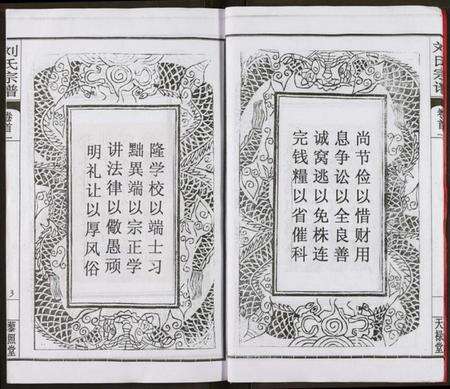 刘氏宗谱
卷首一
天禄堂
尚节俭以惜财用
息争讼以全良善
诫窝逃以免株连
完钱糧以省催科
隆学校以端士习
黜異端以宗正学
讲法律以儆愚顽
明礼让以厚风俗
刘氏宗谱
卷首一
3
藜照堂